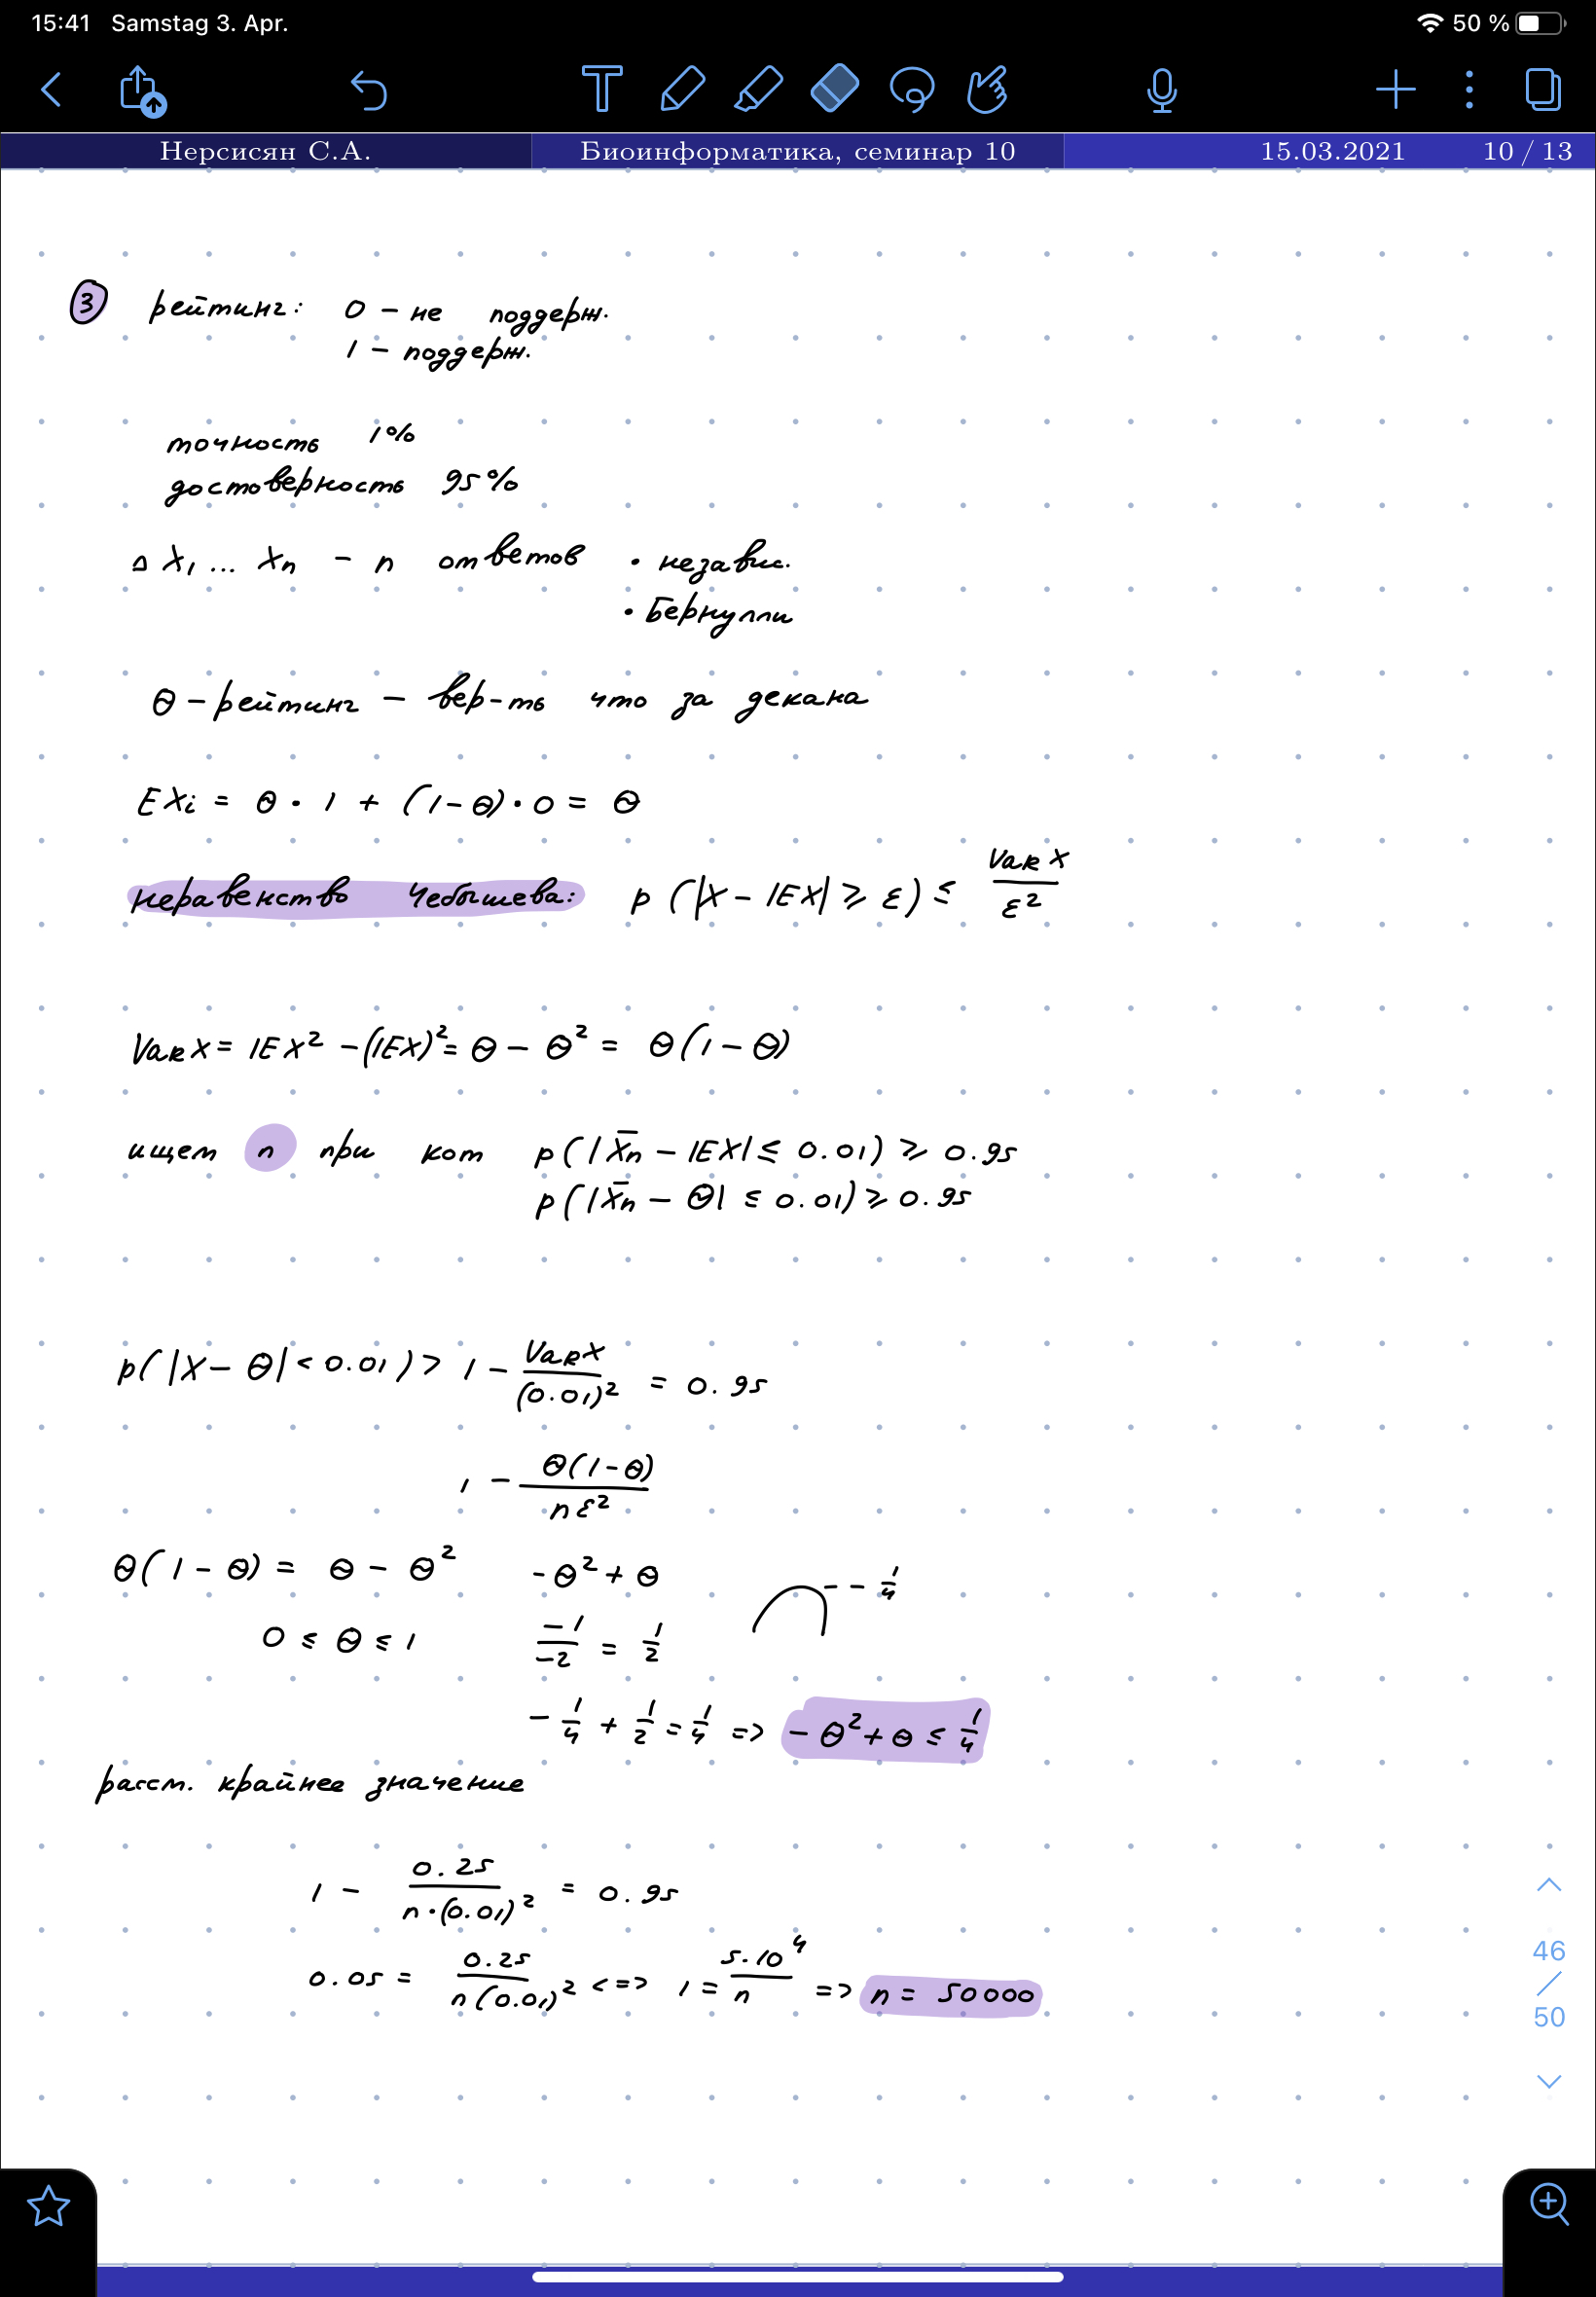 15:41 Samstag 3. Apr. 50 %
Нерсисян С.А. Биоинформатика, семинар 10 15.03.2021 10 / 13
3 рейтинг: 0 – не поддерж.
1 – поддерж.
точность 1%
достоверность 95%
△ X₁ ... Xn – n ответов • независ.
• Бернулли
θ – рейтинг – вер-ть что за декана
EXi = θ · 1 + (1-θ) · 0 = θ
неравенство Чебышева: p (|X – EX| ⩾ ε) ≤ Var X / ε²
Var X = EX² – (EX)² = θ – θ² = θ(1 – θ)
ищем n при кот p(|X̄n – EX| ≤ 0.01) ⩾ 0.95
p(|X̄n – θ| ≤ 0.01) ⩾ 0.95
p(|X – θ| < 0.01) > 1 – Var X / (0.01)² = 0.95
1 – θ(1-θ) / nε²
θ(1 – θ) = θ – θ² -θ² + θ -- 1/4
0 ≤ θ ≤ 1 -1/-2 = 1/2
- 1/4 + 1/2 = 1/4 => - θ² + θ ≤ 1/4
расст. крайнее значение
1 – 0.25 / n·(0.01)² = 0.95
0.05 = 0.25 / n(0.01)² <=> 1 = 5·10⁴ / n => n = 50000
46
/
50